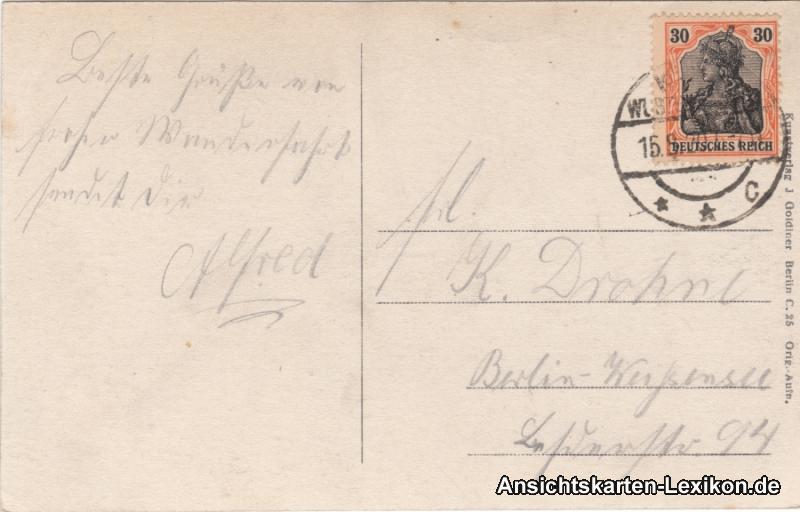 Beste Grüße von
froher Wanderfahrt
sendet Dir
Alfred
30 30
DEUTSCHES REICH
15.8.
C
Frl.
K. Drohne
Berlin-Weissensee
94
Kunstverlag J Goldiner Berlin C. 25 Orig.-Aufn.
Ansichtskarten-Lexikon.de